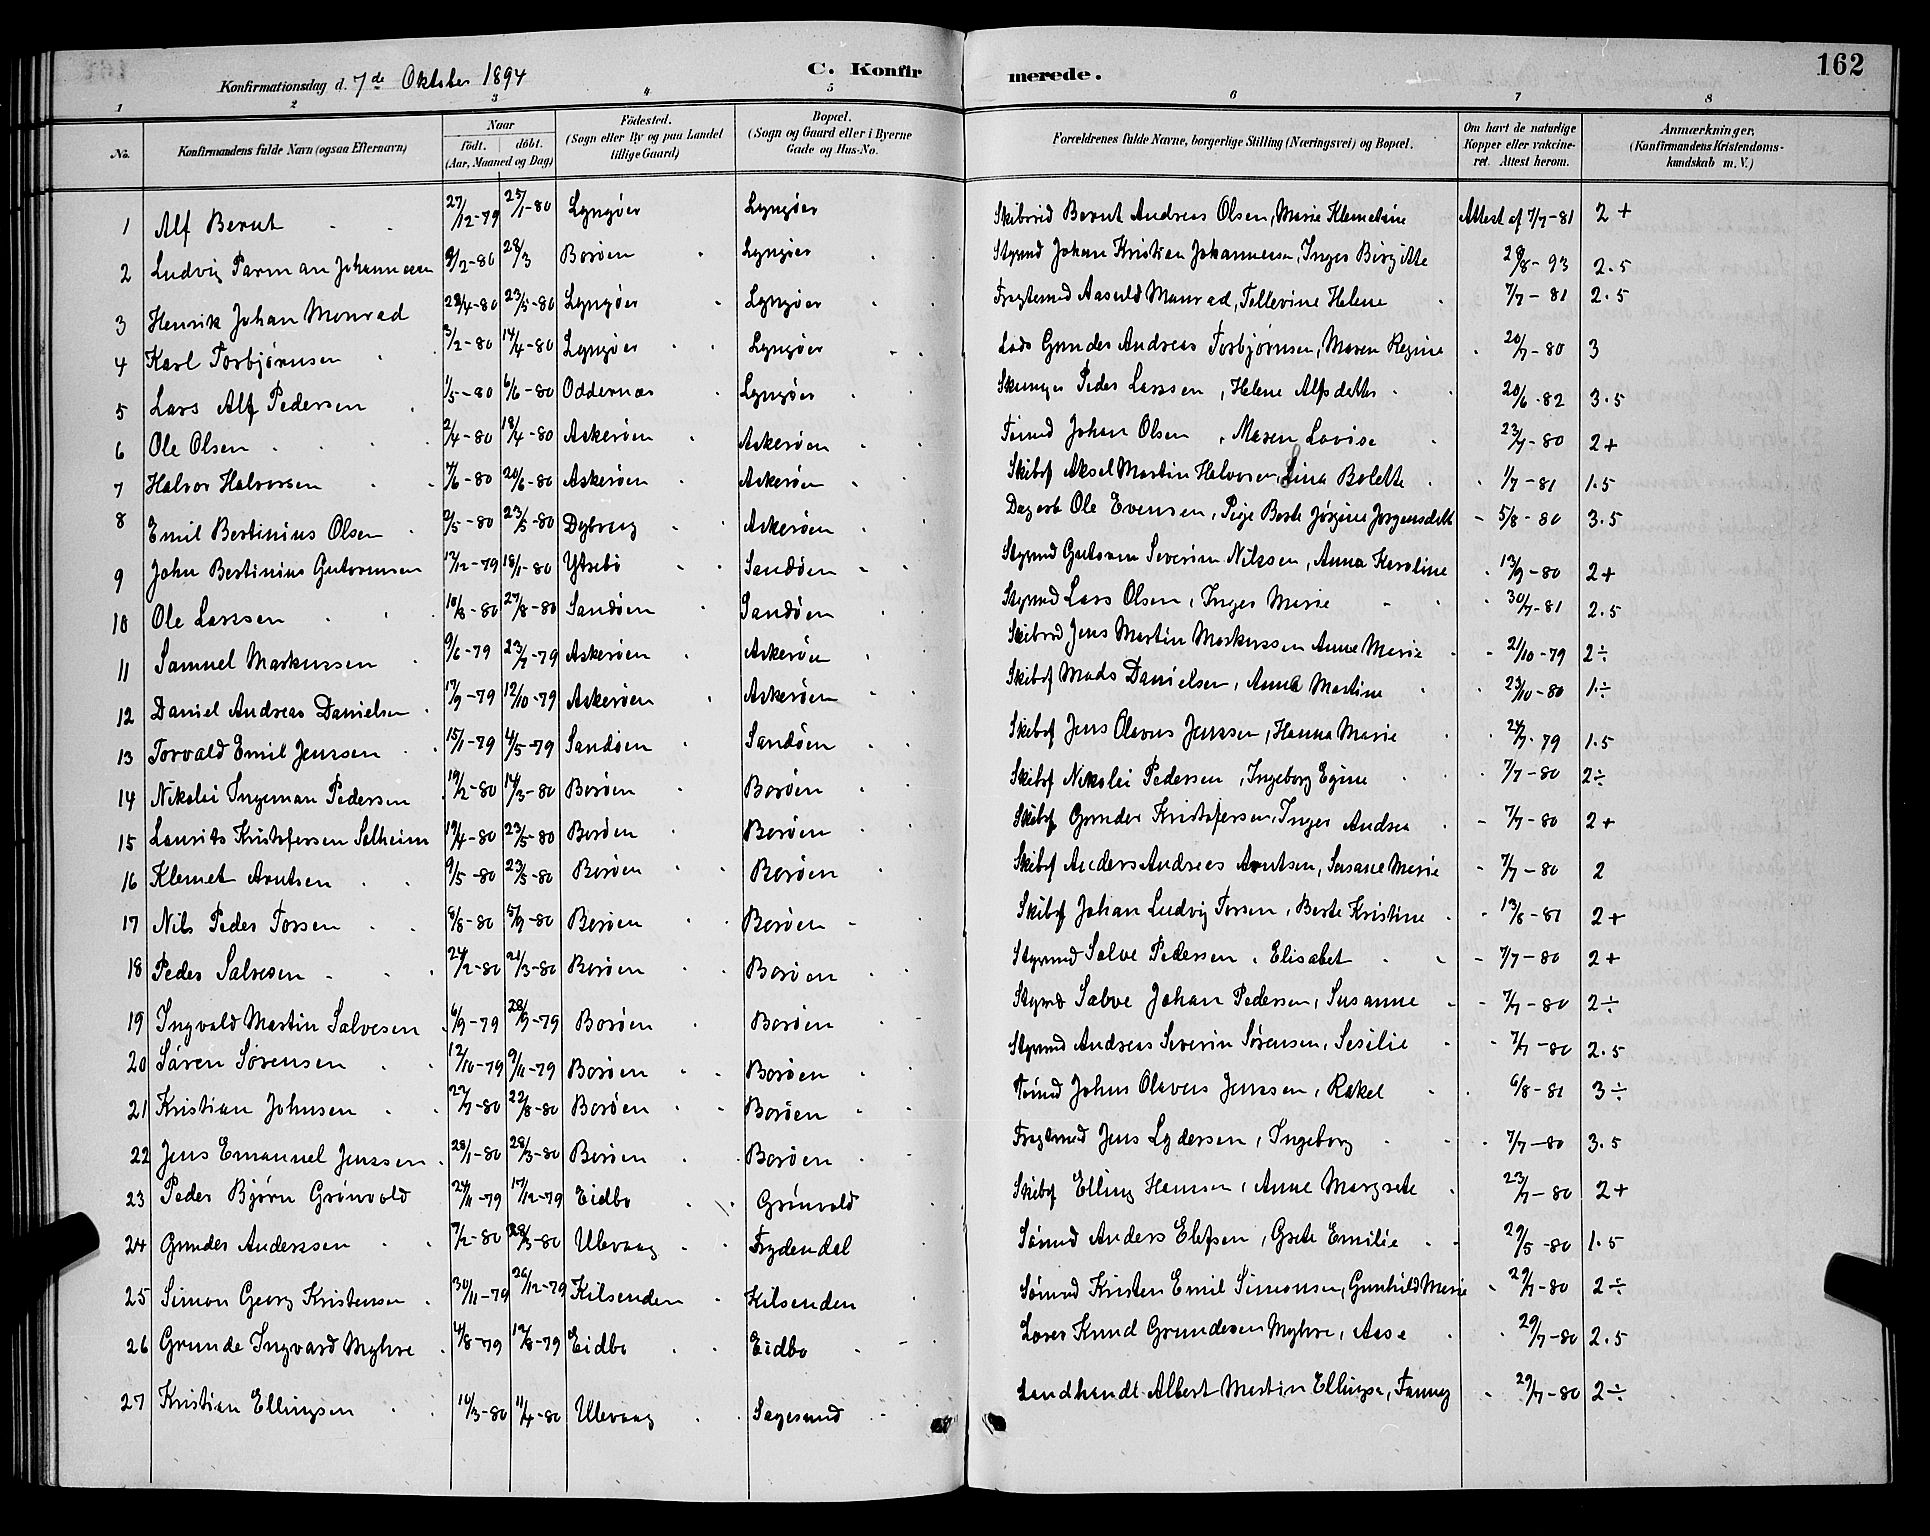 162
Konfirmationsdag d. 7de Oktober 1894 C. Konfirmerede.
1 2 3 4 5 6 7 8
No. Konfirmandens fulde Navn (ogsaa Efternavn) Naar födt. döbt. (Aar, Maaned og Dag) Födested. (Sogn eller By og paa Landet tillige Gaard) Bopæl. (Sogn og Gaard eller i Byerne Gade og Hus-No. Forældrenes fulde Navne, borgerlige Stilling (Næringsvei) og Bopæl. Om havt de naturlige Kopper eller vakcineret. Attest herom. Anmærkninger. (Konfirmandens Kristendomskundskab m. V.)
1 Alf Berut 27/12-79 25/1-80 Lyngöer Lyngöer Skibsrid Berut Andreas Olsen, Marie Klemetsine Attest af 7/7-81 2+
2 Ludvig Parman Johannesen /2-80 28/3 Boröen Lyngöer Styrmd Johan Kristian Johannesen, Inger Birgitte 28/8-93 2.5
3 Henrik Johan Monrad 22/4-80 23/5-80 Lyngöer Lyngöer Fragtemd Aasuld Monrad, Tellevine Helene 7/7-81 2.5
4 Karl Torbjörnsen 3/2-80 14/4-80 Lyngöer Lyngöer Lods Gunder Andreas Torbjörnsen, Maren Regine 20/7-80 3
5 Lars Alf Pedersen 1/5-80 6/6-80 Oddernæs Lyngöer Peder Larssen, Helene Alfsdatter 20/6-82 3.5
6 Ole Olsen 2/4-80 18/4-80 Askeröen Askeröen Tömd Johan Olsen, Maren Lovise 23/7-80 2+
7 Halvor Halvorsen 7/6-80 20/6-80 Askeröen Askeröen Skibsf Aksel Martin Halvorsen, Lina Bolette 1/7-81 1.5
8 Emil Bertinius Olsen /5-80 23/5-80 Dybvug Askeröen Dagarb Ole Evensen, Pige Berte Jörgine Jörgensdatt 5/8-80 3.5
9 John Bertinius Gutormsen 17/12-79 18/1-80 Ytrebö Sandöen Styrmd Gutorm Severin Nilssen, Anna Karoline 13/9-80 2+
10 Ole Larssen 10/8-80 27/8-80 Sandöen Sandöen Styrmd Lars Olsen, Inger Marie 30/7-81 2.5
11 Samuel Markussen 9/6-79 23/7-79 Askeröen Askeröen Jens Martin Markussen Anne Marie 21/10-79 2÷
12 Daniel Andreas Danielsen 17/9-79 12/10-79 Askeröen Askeröen Skibsf Mads Danielsen, Anna Martine 23/10-80 1÷
13 Torvald Emil Jenssen 15/1-79 4/5-79 Sandöen Sandöen Skibsf Jens Olavus Jenssen, Hanna Marie 24/7-79 1.5
14 Nikolai Ingeman Pedersen 19/2-80 14/3-80 Boröen Boröen Skibsf Nikolai Pedersen, Ingeborg Egine 7/7-80 2÷
15 Laurits Kristofersen Solheim 19/4-80 23/5-80 Boröen Boröen Skibsf Gunder Kristofersen, Inger Andrea 7/7-80 2+
16 Klemet Arntsen 9/5-80 23/5-80 Boröen Boröen Skibsf Anders Andreas Arntsen, Susane Marie 7/7-80 2
17 Nils Peder Torsen 8/8-80 5/9-80 Boröen Boröen Skibsf Johan Ludvig Torsen, Berte Kristine 13/8-81 2+
18 Peder Salvesen 24/2-80 21/3-80 Boröen Boröen Styrmd Salve Pedersen, Elisabet 7/7-80 2+
19 Ingvald Martin Salvesen 6/9-79 28/9-79 Boröen Boröen Styrmd Salve Johan Pedersen, Susanne 7/7-80 2÷
20 Sören Sörensen 12/10-79 9/11-79 Boröen Boröen Styrmd Andreas Severin Sörensen, Sesilie 7/7-80 2.5
21 Kristian Johnsen 27/7-80 22/8-80 Boröen Boröen Tömd John Olavus Jenssen, Rakel 6/8-81 3÷
22 Jens Emanuel Jenssen 28/1-80 28/3-80 Boröen Boröen Fragtemd Jens Lydersen, Ingeborg 7/7-80 3.5
23 Peder Björn Grönvold 24/11-79 17/12-79 Eidbo Grönvold Skibsf Elling Hansen, Anne Margrete 23/7-80 2+
24 Gunder Anderssen 7/2-80 28/3-80 Ulevaag Frydendal Sömd Anders Elefsen, Grete Emilie 29/5-80 1.5
25 Simon Georg Kristensen 30/11-79 26/12-79 Kilsenden Kilsenden Sömd Kristen Emil Simonsen, Gunhild Marie 29/7-80 2÷
26 Grunde Ingvard Myhre 4/8-79 /8-79 Eidbo Eidbo Knud Grundesen Myhre, Aase 29/7-80 2.5
27 Kristian Ellingsen 10/3-80 11/4-80 Ulevaag Sagesund Landhandl. Albert Martin Ellingsen, Fanny 29/7-80 2÷